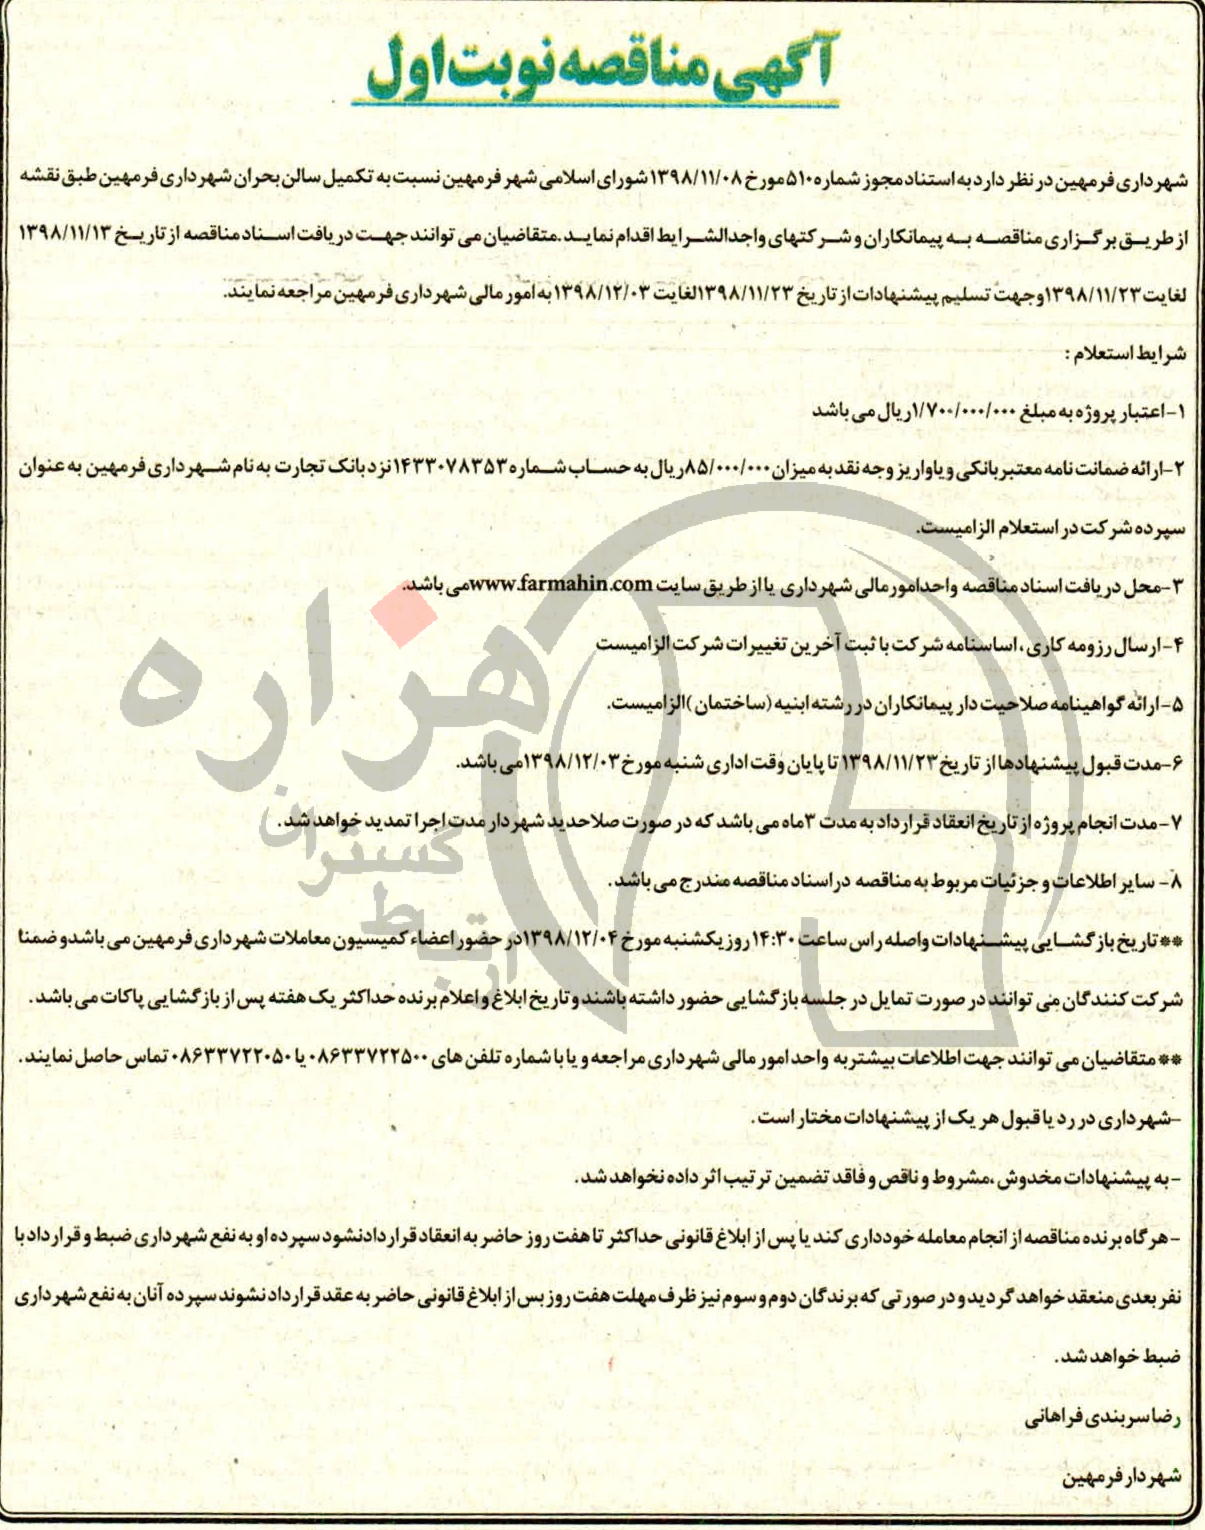 آگهی مناقصه نوبت اول
شهرداری فرمهین در نظر دارد به استناد مجوز شماره ۵۱۰ مورخ ۱۳۹۸/۱۱/۰۸ شورای اسلامی شهر فرمهین نسبت به تکمیل سالن بحران شهرداری فرمهین طبق نقشه
از طریق برگزاری مناقصه به پیمانکاران و شرکتهای واجدالشرایط اقدام نماید. متقاضیان می توانند جهت دریافت اسناد مناقصه از تاریخ ۱۳۹۸/۱۱/۱۳
لغایت ۱۳۹۸/۱۱/۲۳ وجهت تسلیم پیشنهادات از تاریخ ۱۳۹۸/۱۱/۲۳ لغایت ۱۳۹۸/۱۲/۰۳ به امور مالی شهرداری فرمهین مراجعه نمایند.
شرایط استعلام :
۱- اعتبار پروژه به مبلغ ۱/۷۰۰/۰۰۰/۰۰۰ ریال می باشد
۲-ارائه ضمانت نامه معتبر بانکی و یا واریز وجه نقد به میزان ۸۵/۰۰۰/۰۰۰ ریال به حساب شماره ۱۴۳۳۰۷۸۳۵۳ نزد بانک تجارت به نام شهرداری فرمهین به عنوان
سپرده شرکت در استعلام الزامیست.
۳-محل دریافت اسناد مناقصه واحدامورمالی شهرداری یا از طریق سایت www.farmahin.com می باشد.
۴-ارسال رزومه کاری ، اساسنامه شرکت با ثبت آخرین تغییرات شرکت الزامیست
۵- ارائه گواهینامه صلاحیت دار پیمانکاران در رشته ابنیه (ساختمان )الزامیست.
۶-مدت قبول پیشنهادها از تاریخ ۱۳۹۸/۱۱/۲۳ تا پایان وقت اداری شنبه مورخ ۱۳۹۸/۱۲/۰۳ می باشد.
۷-مدت انجام پروژه از تاریخ انعقاد قرارداد به مدت ۳ماه می باشد که در صورت صلاحدید شهردار مدت اجرا تمدید خواهد شد .
۸- سایر اطلاعات و جزئیات مربوط به مناقصه در اسناد مناقصه مندرج می باشد .
**تاریخ بازگشایی پیشنهادات واصله راس ساعت ۱۴:۳۰ روز یکشنبه مورخ ۱۳۹۸/۱۲/۰۴ در حضور اعضاء کمیسیون معاملات شهرداری فرمهین می باشد و ضمنا
شرکت کنندگان می توانند در صورت تمایل در جلسه بازگشایی حضور داشته باشند و تاریخ ابلاغ و اعلام برنده حداکثر یک هفته پس از بازگشایی پاکات می باشد .
** متقاضیان می توانند جهت اطلاعات بیشتربه واحد امور مالی شهرداری مراجعه و یا با شماره تلفن های ۰۸۶۳۳۷۲۲۵۰۰ یا ۰۸۶۳۳۷۲۲۰۵۰ تماس حاصل نمایند .
-شهرداری در رد یا قبول هر یک از پیشنهادات مختار است .
-به پیشنهادات مخدوش ،مشروط و ناقص و فاقد تضمین ترتیب اثر داده نخواهد شد.
-هرگاه برنده مناقصه از انجام معامله خودداری کند یا پس از ابلاغ قانونی حداکثر تا هفت روز حاضر به انعقاد قرارداد نشود سپرده او به نفع شهرداری ضبط و قرارداد با
نفر بعدی منعقد خواهد گردید و در صورتی که برندگان دوم و سوم نیز ظرف مهلت هفت روز پس از ابلاغ قانونی حاضر به عقد قرارداد نشوند سپرده آنان به نفع شهرداری
ضبط خواهد شد .
رضا سربندی فراهانی
شهردار فرمهین
هزاره
گستران
ارتباط